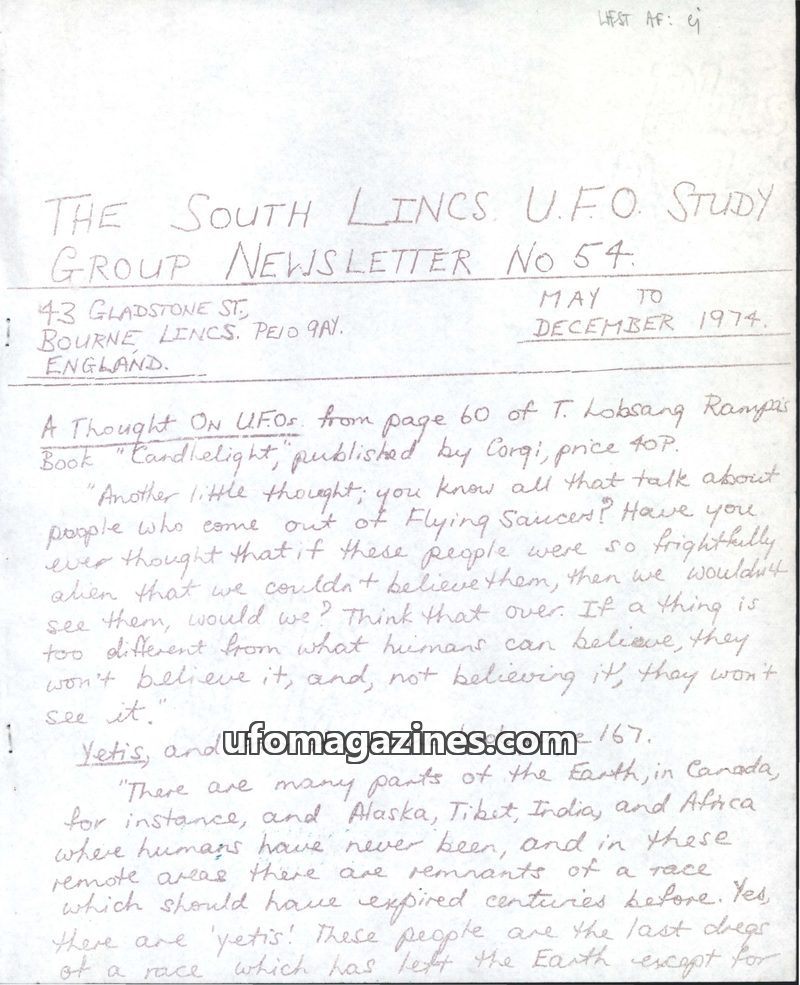 THE SOUTH LINCS. U.F.O. STUDY
GROUP NEWSLETTER No 54.
43 GLADSTONE ST.,
BOURNE LINCS. PE10 9AY.
ENGLAND.
MAY TO
DECEMBER 1974.
A Thought ON U.F.Os. from page 60 of T. Lobsang Rampa's
Book "Candlelight," published by Corgi, price 40P.
"Another little thought; you know all that talk about
people who come out of Flying Saucers? Have you
ever thought that if these people were so frightfully
alien that we couldn't believe them, then we wouldn't
see them, would we? Think that over. If a thing is
too different from what humans can believe, they
won't believe it, and, not believing it, they won't
see it."
Yetis, and 167.
ufomagazines.com
"There are many parts of the Earth, in Canada,
for instance, and Alaska, Tibet, India, and Africa
where humans have never been, and in these
remote areas there are remnants of a race
which should have expired centuries before. Yes,
there are 'yetis'. These people are the last dregs
of a race which has left the Earth except for